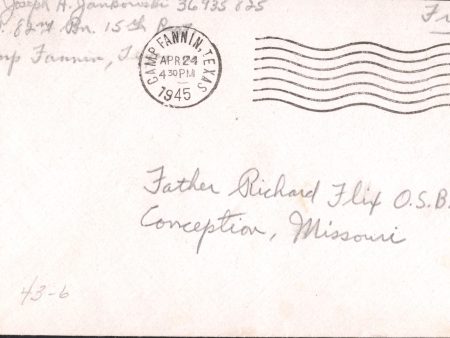 Joseph A. Jankowski 36935825
82nd Bn. 15th
Camp Fannin,
CAMP FANNIN, TEXAS
APR 24
4 30 PM
1945
Father Richard Flix O.S.B.
Conception, Missouri
43-6